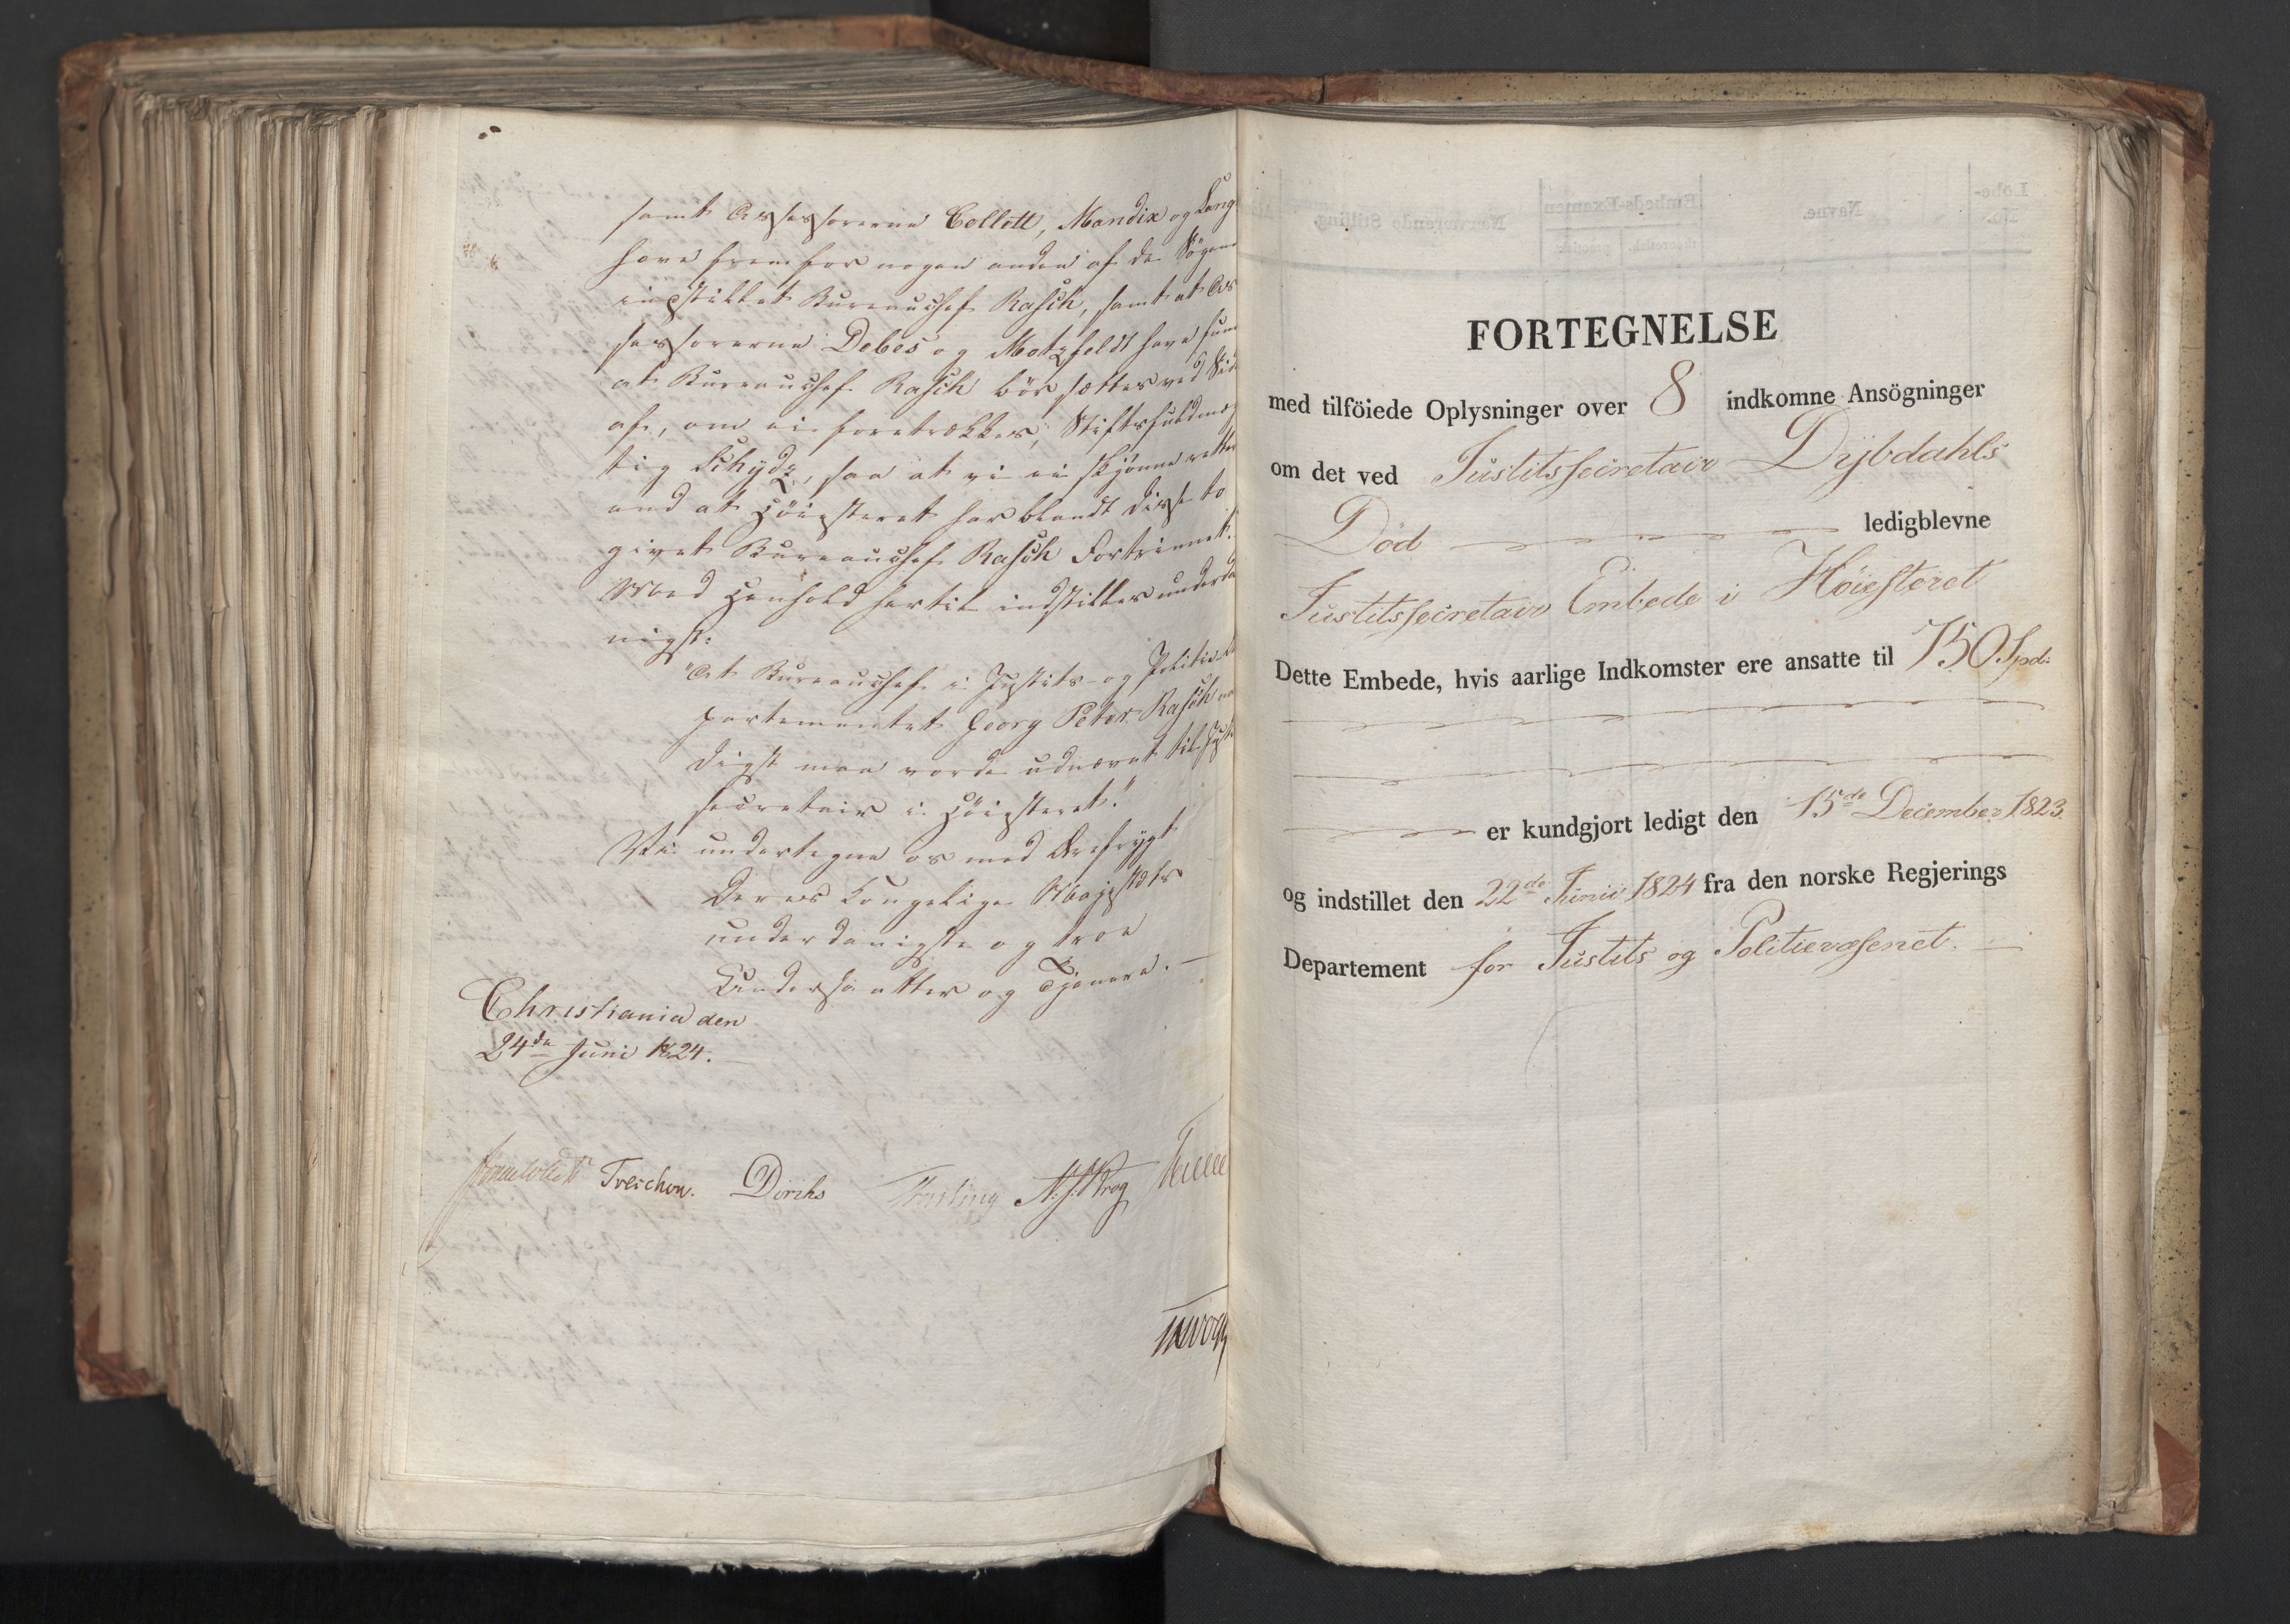 samt Assessorerne Collett, Mandix og Lang
have fremfor nogen anden af de Søgen
indstillet Bureauchef Rasch, samt at As
sessorerne Debes og Motzfeldt have fun
at Bureauchef Rasch bör sættes ved Sid
af, om ei foretrækkes, Stiftsfuldmæg
tig Schydz, saa at vi ei skjönne rettere
end at Höiesteret har blandt disse to
givet Bureauchef Rasch Fortrinnet.
Med Henhold hertil indstilles underda
nigst:
"At Bureauchef i Justits- og Politie-De
partementet Georg Peter Rasch naa
digst maa vorde udnævnt til Justits
secretair i Höiesteret."
Vi undertegne os med Ærefrygt
Deres Kongelige Majestæts
underdanigste og troe
Undersaatter og Tjenere. —
Christiania den
24de Juni 1824.
Treschow. Diriks
A: S: Krog
FORTEGNELSE
med tilföiede Oplysninger over 8 indkomne Ansögninger
om det ved Justitssecretair Dybdahls
Död ledigblevne
Justitssecretair Embede i Höiesteret
Dette Embede, hvis aarlige Indkomster ere ansatte til 750 Spd:
er kundgjort ledigt den 15de December 1823.
og indstillet den 22de Junii 1824 fra den norske Regjerings
Departement for Justits og Politievæsenet. —